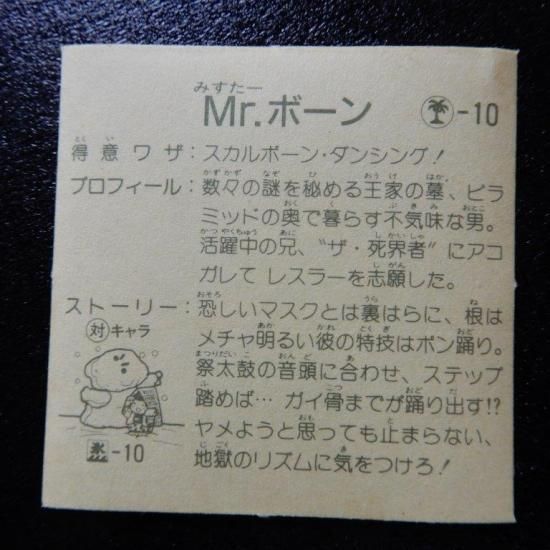 みすたー
Mr.ボーン -10
得意ワザ:スカルボーン・ダンシング!
プロフィール:数々の謎を秘める王家の墓、ピラ
ミッドの奥で暮らす不気味な男。
活躍中の兄、“ザ・死界者”にアコ
ガレてレスラーを志願した。
ストーリー:恐しいマスクとは裏はらに、根は
メチャ明るい彼の特技はボン踊り。
祭太鼓の音頭に合わせ、ステップ
踏めば…ガイ骨までが踊り出す!?
ヤメようと思っても止まらない、
地獄のリズムに気をつけろ!
対キャラ
氷-10